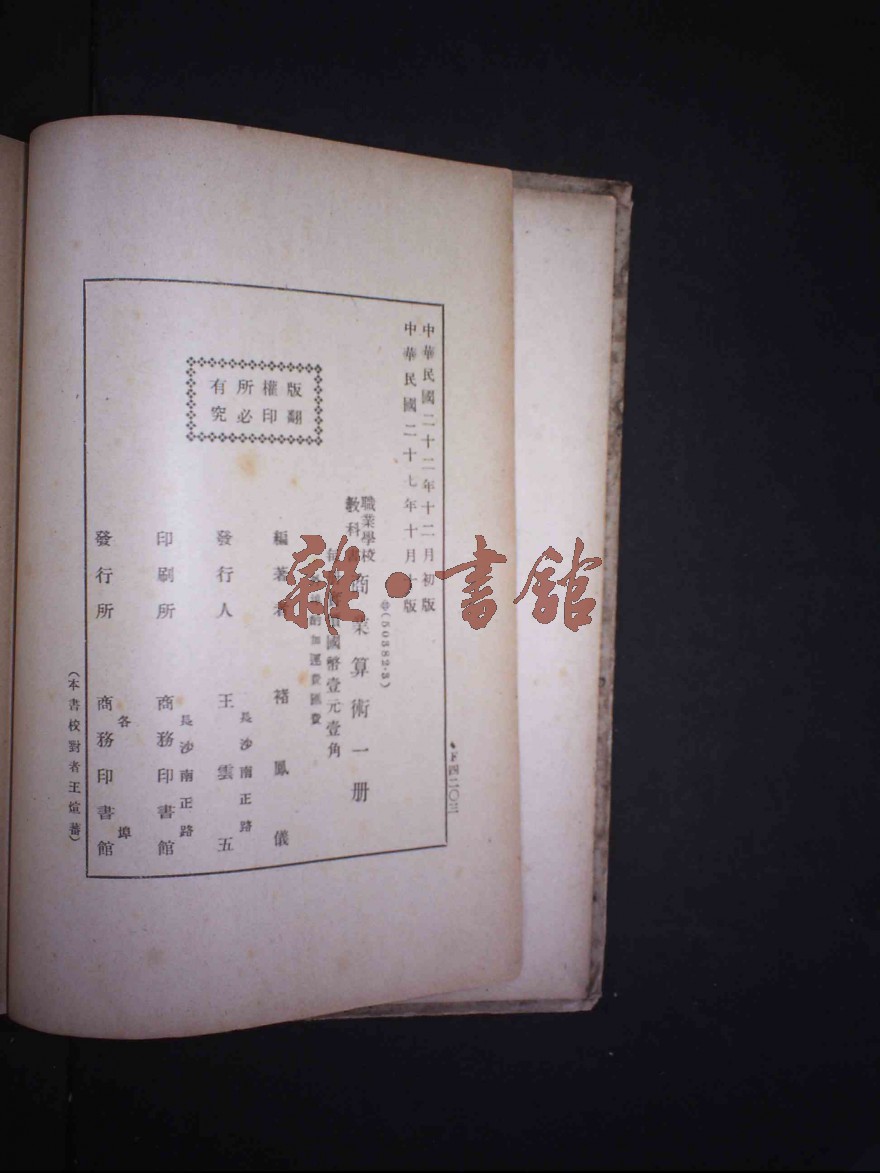 中華民國二十二年十二月初版
中華民國二十七年十月十版
(50382·3)
職業學校
教科書
商業算術一册
國幣壹元壹角
酌加運費匯費
編著者 褚鳳儀
發行人 王雲五
長沙南正路
印刷所 商務印書館
長沙南正路
發行所 商務印書館
各埠
版權所有
翻印必究
(本書校對者王煊蕃)
F四二〇三
雜·書館